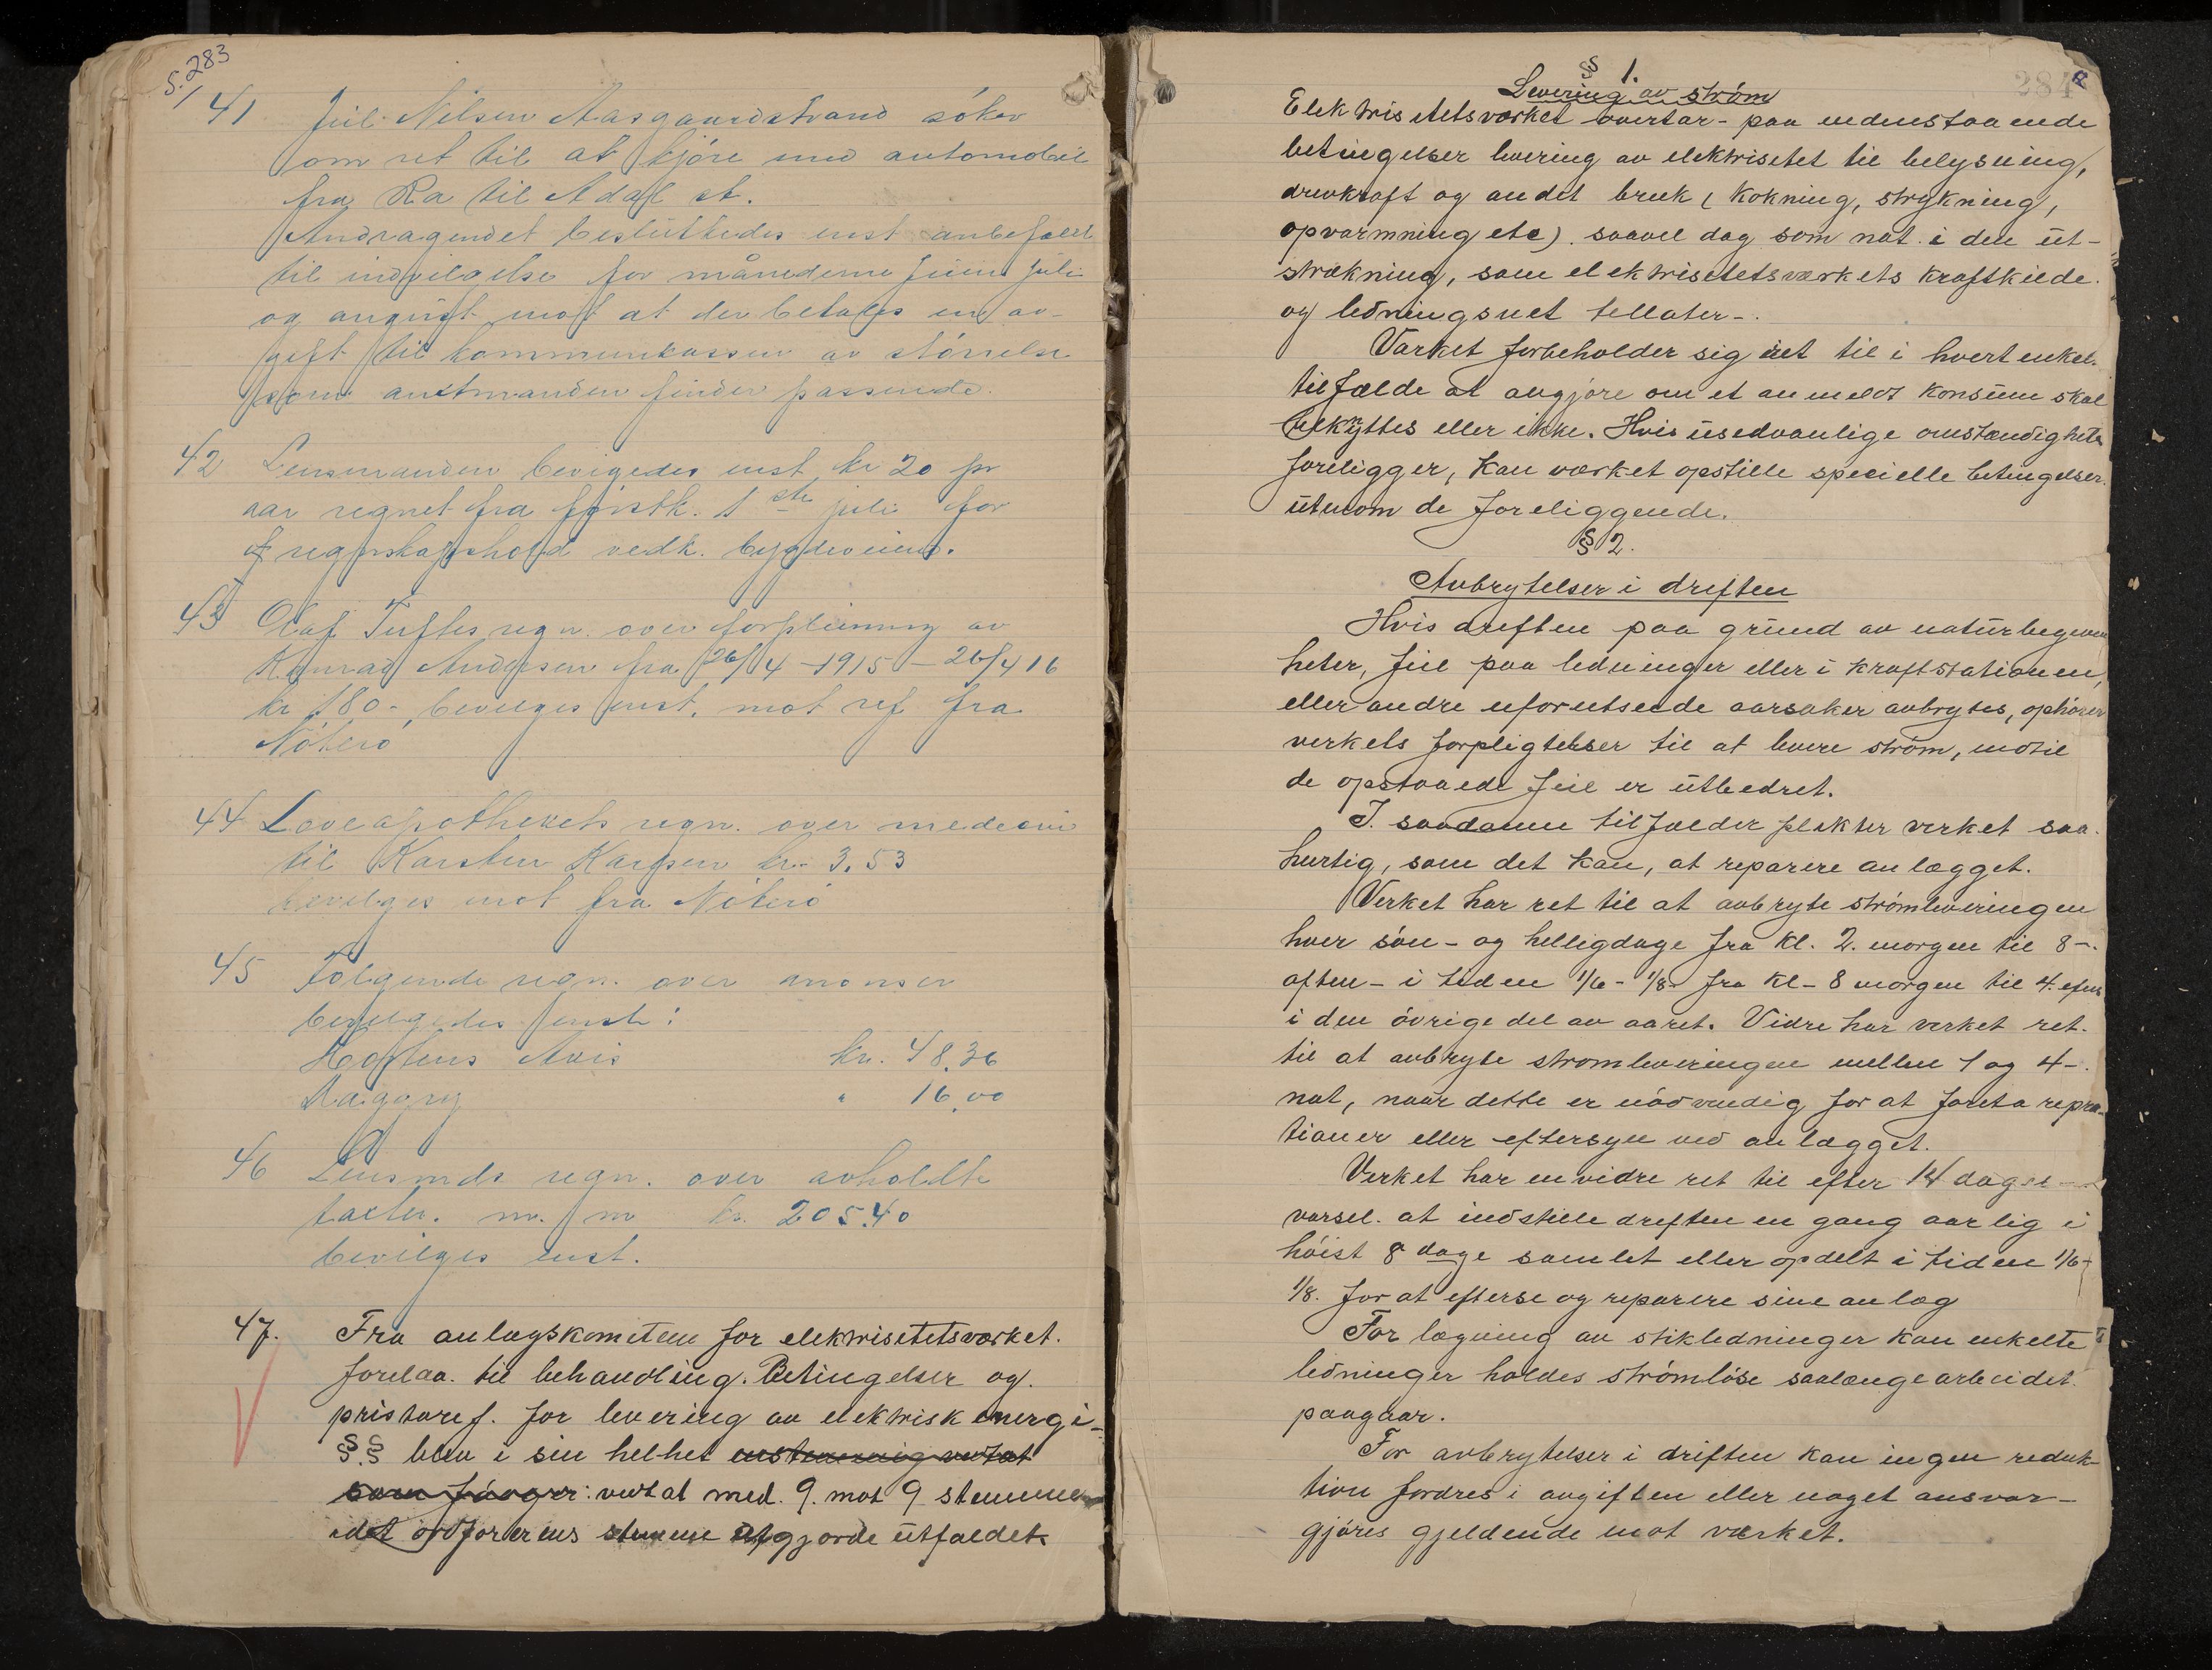 S. 283
41 Juli Nilsen Aasgaardstrand söker
om ret til at kjöre med automobil
fra Ra til Adal st.
Andragendet besluttedes enst anbefalet
til indvilgelse for månederne Juni Juli
og august mot at der betales en av-
gift til kommunekassen av störrelse
som amtmanden finder passende.
42 Lensmanden bevigedes enst kr 20 pr
aar regnet fra förstk. 1ste juli for
regnskapshold vedk. bygdeveiene.
43 Olaf Tuftes regn. over forpleining av
Konrad Andersen fra 26/4 - 1915 - 26/4 16
kr 180 - bevilges enst. mot ref fra
Nöterö
44 Löveapothekets regn. over medecin
til Karsten Karlsen kr. 3.53
bevilges mot fra Nöterö
45 Fölgende regn. over anonser
bevilgedes enst:
Hortens Avis kr. 48.36
Dagny " 16.00
46 Lensmds regn. over avholdte
takter. m. m kr. 205.40
bevilges enst.
47. Fra anlægskomiteen for elektrisitetsværket.
forelaa. til behandling. Betingelser og.
pristarif. for levering av elektrisk energi-
§§ blev i sin helhet enstemmig vedtat
som föroger: vedtat med. 9. mot 9 stemmer
idet ordförerens stemme utgjorde utfaldet.
284
§ 1.
Levering av ström
Elektrisitetsværket overtar - paa nedenstaaende
betingelser levering av elektrisitet til belysning,
drivkraft og andet bruk (kokning, strykning,
opvarmning etc). saavel dag som nat. i den ut-
strækning, som elektrisitetsværkets kraftkilde.
og ledningsnet tillater-.
Værket forbeholder sig ret til i hvert enkel.
tilfælde at avgjöre om et anmeldt konsum skal
beskyttes eller ikke. Hvis usedvanlige omstændigheter
foreligger, kan værket opstille specielle betingelser.
utenom de foreliggende.
§ 2.
Avbrytelser i driften
Hvis driften paa grund av naturbegiven
heter, feil paa ledninger eller i kraftstationen,
eller andre uforutseede aarsaker avbrytes, ophörer
verkets forpligtelser til at levere ström, indtil
de opstaaede feil er utbedret.
I. saadanne tilfælder plikter verket saa.
hurtig, som det kan, at reparere anlægget.
Verket har ret til at avbryte strömleveringen
hver sön- og helligdage fra kl. 2. morgen til 8-.
aften - i tiden 1/6 - 1/8- fra kl- 8 morgen til 4. efm
i den övrige del av aaret. Vidre har verket ret.
til at avbryte strömleveringen mellem 1 og 4-.
nat, naar dette er nödvendig for at foreta repra-
tioner eller eftersyn ved anlægget.
Verket har en vidre ret til efter 14 dages -
varsel. at indstille driften en gang aarlig i
höist 8 dage samlet eller opdelt i tiden 1/6 -
1/8. for at efterse og reparere sine anlæg
For lægning av stikledninger kan enkelte
ledninger holdes strömlöse saalænge arbeidet.
paagaar.
For avbrytelser i driften kan ingen reduk-
tion fordres i avgiften eller noget ansvar-
gjöres gjeldende mot værket.